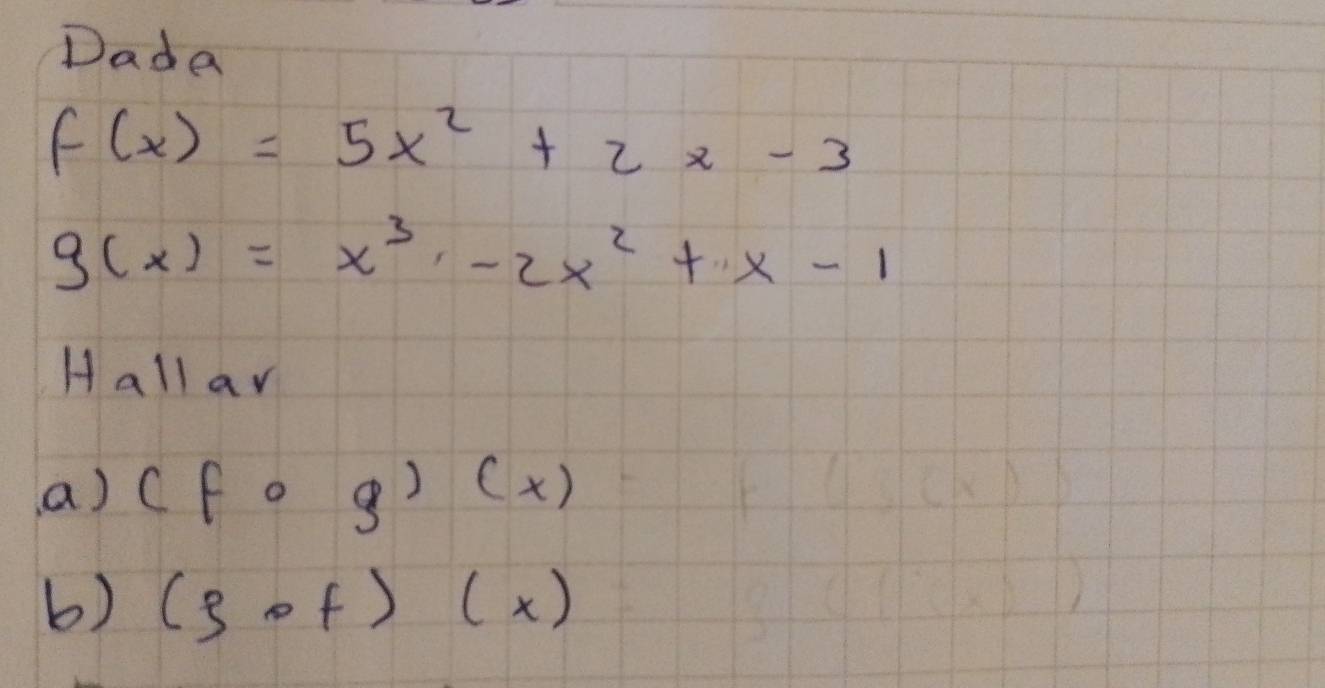 Dada
f(x) = 5x² + 2x - 3
g(x) = x³ - 2x² + x - 1
Hallar
a) (f ∘ g) (x) = f (g(x))
b) (g ∘ f) (x) = g (f(x))